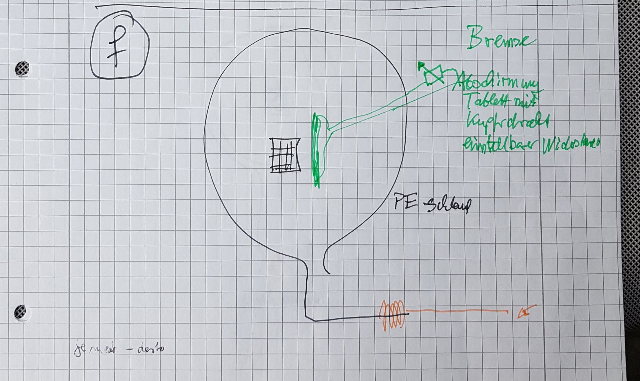 f
Bremse
Abschirmung
Tablett mit
Kupferdraht
einstellbarer Widerstand
PE-Schlauf